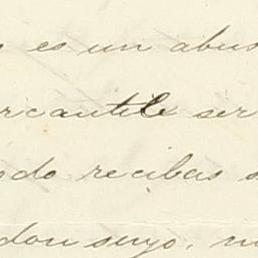 es un abus
rcantile ser
do recibas s
don suyo. n